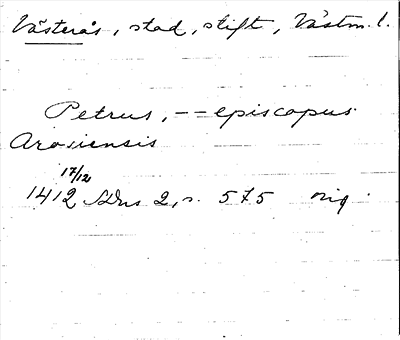 Västerås, stad, stift, Västm. l.
Petrus, -- episcopus
Arosiensis
17/12
1412 SDns 2, s. 575 orig.